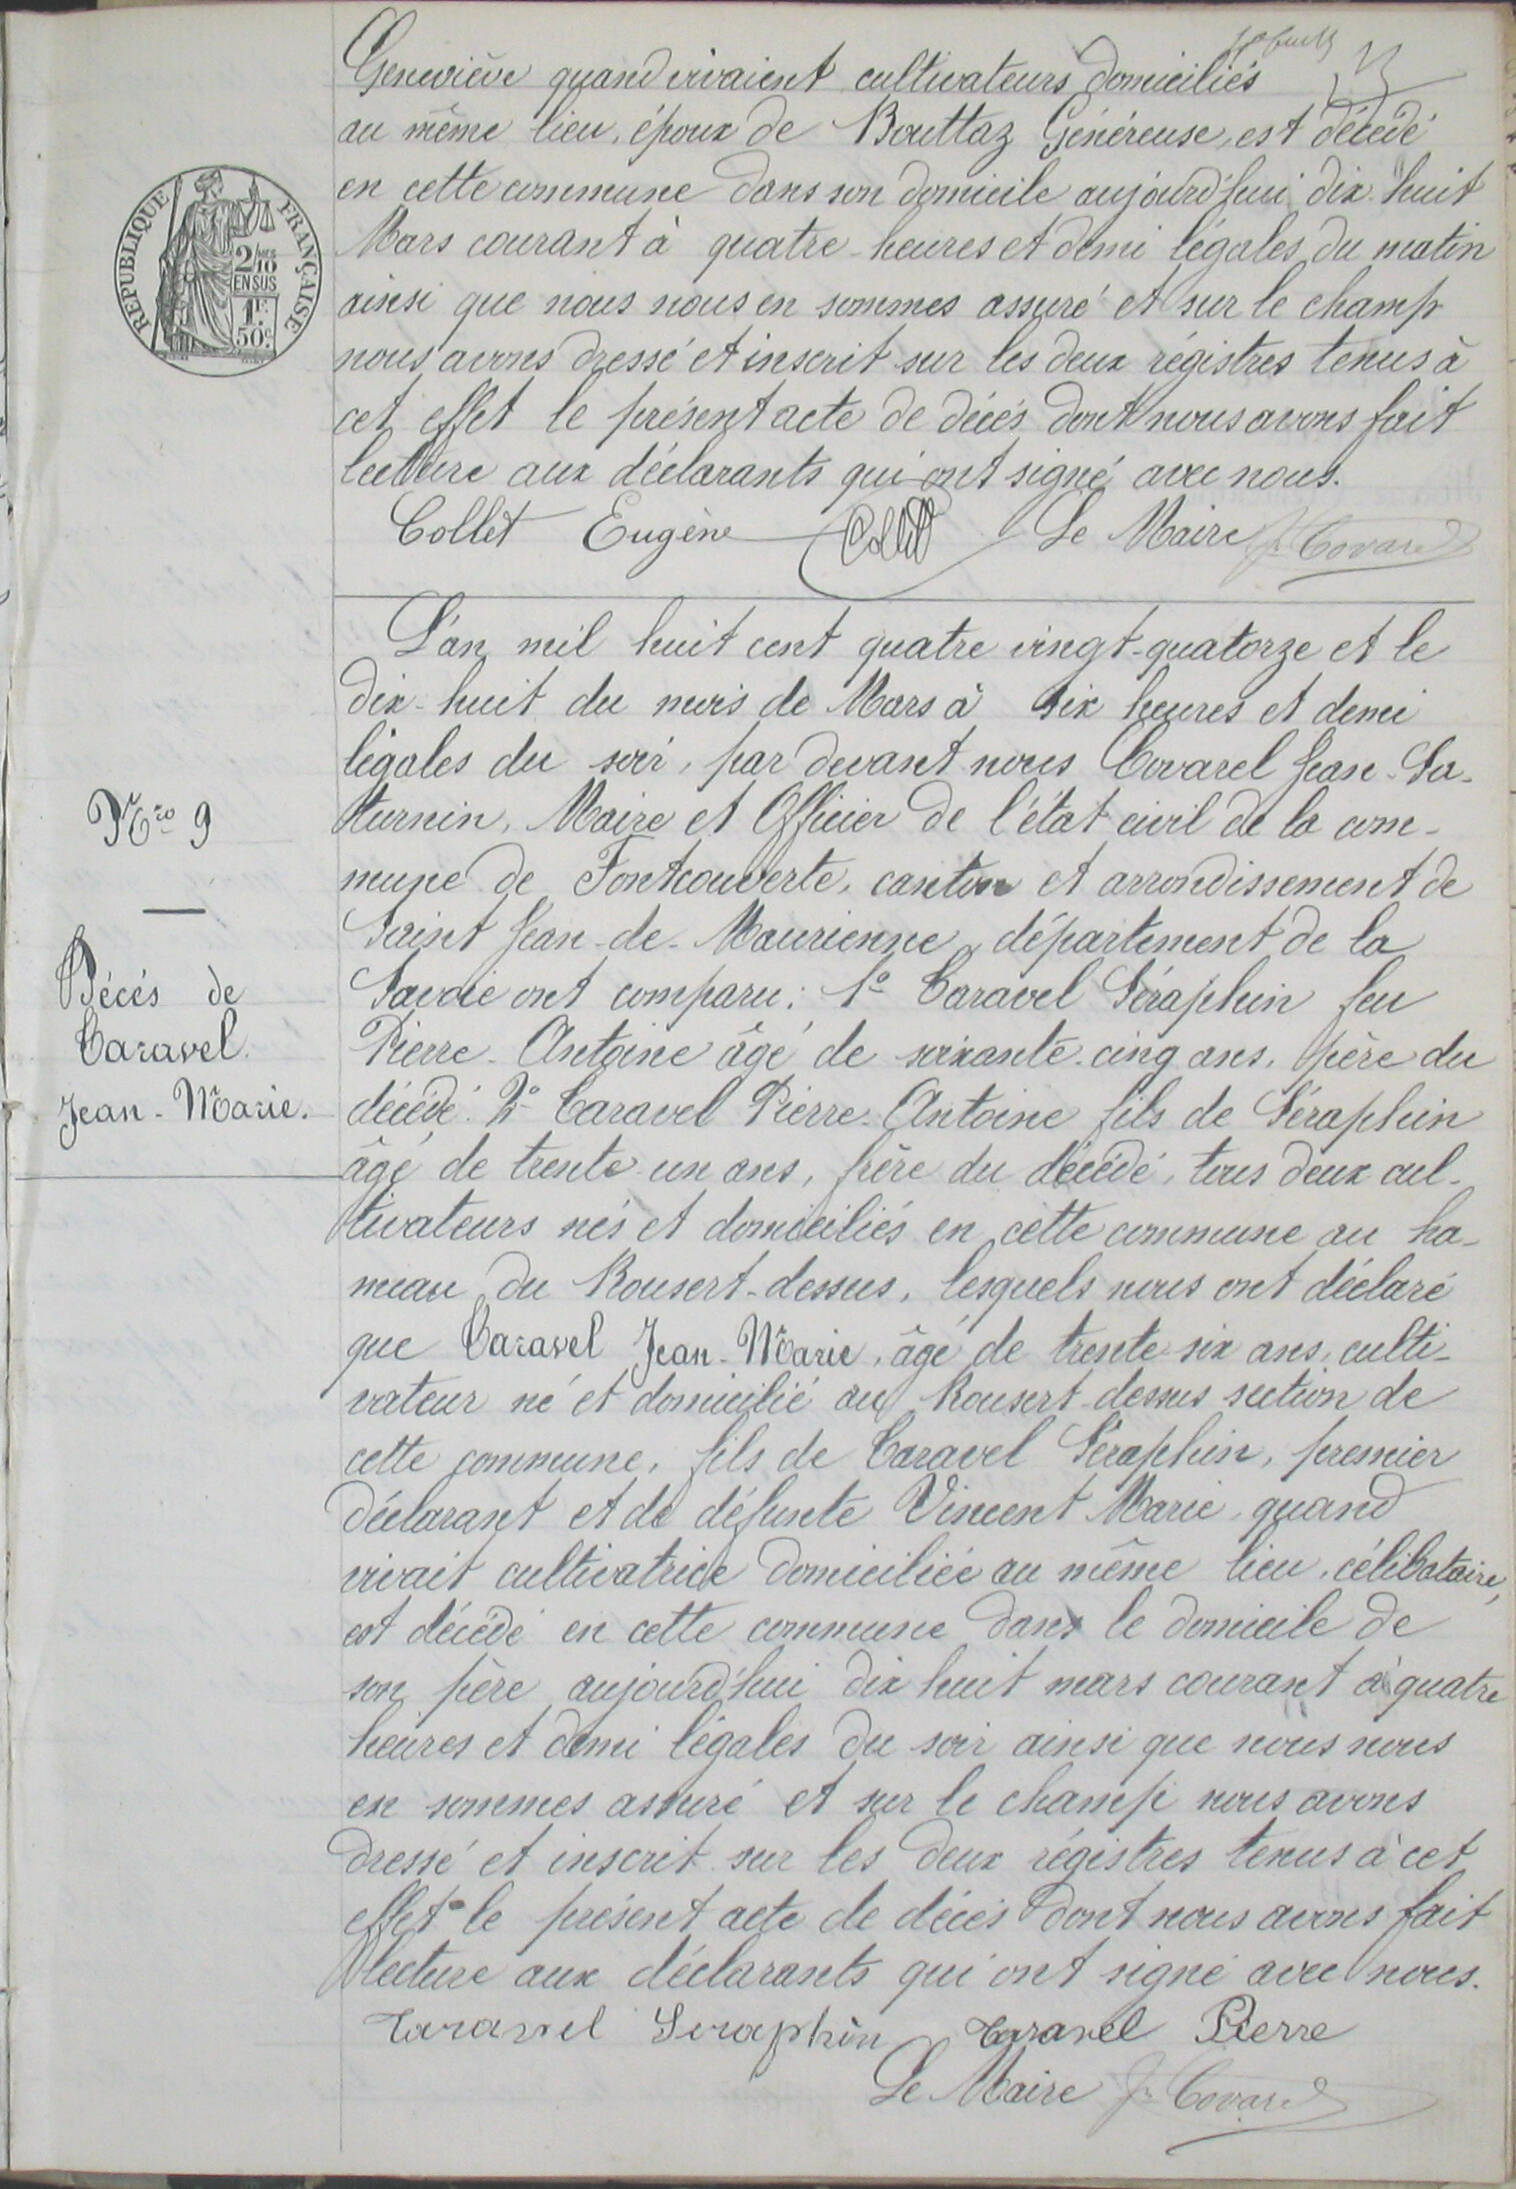 Geneviève quand vivaient cultivateurs domiciliés
au même lieu, époux de Bouttaz Généreuse, est décédé
en cette commune dans son domicile aujourd'hui dix-huit
Mars courant à quatre-heures et demi légales du matin
ainsi que nous nous en sommes assuré et sur le champ
nous avons dressé et inscrit sur les deux régistres tenus à
cet effet le présent acte de décès dont nous avons fait
lecture aux déclarants qui ont signé avec nous.
Collet Eugène Collet Le Maire J. Covarel
REPUBLIQUE FRANÇAISE
2/10
EN SUS
1F.
50c.
L'an mil huit cent quatre vingt-quatorze et le
dix-huit du mois de Mars à six heures et demi
légales du soir, par devant nous Covarel Jean-Sa-
turnin, Maire et Officier de l'état civil de la com-
mune de Fontcouverte, canton et arrondissement de
Saint Jean-de-Maurienne, département de la
Savoie ont comparu: 1º Taravel Séraphin feu
Pierre-Antoine âgé de soixante-cinq ans, père du
décédé. 2º Taravel Pierre-Antoine fils de Séraphin
âgé de trente un ans, frère du décédé, tous deux cul-
tivateurs nés et domiciliés en cette commune au ha-
meau du Rousert-dessus, lesquels nous ont déclaré
que Taravel Jean-Marie, âgé de trente-six ans, culti-
vateur né et domicilié au Rousert-dessus section de
cette commune, fils de Taravel Séraphin, premier
déclarant et de défunte Vincent Marie, quand
vivait cultivatrice domiciliée au même lieu, célibataire,
est décédé en cette commune dans le domicile de
son père aujourd'hui dix huit mars courant à quatre
heures et demi légales du soir ainsi que nous nous
en sommes assuré et sur le champ nous avons
dressé et inscrit sur les deux régistres tenus à cet
effet le présent acte de décès dont nous avons fait
lecture aux déclarants qui ont signé avec nous.
Taravel Seraphin Taravel Pierre
Le Maire J. Covarel
Nro 9
Décés de
Taravel
Jean-Marie.